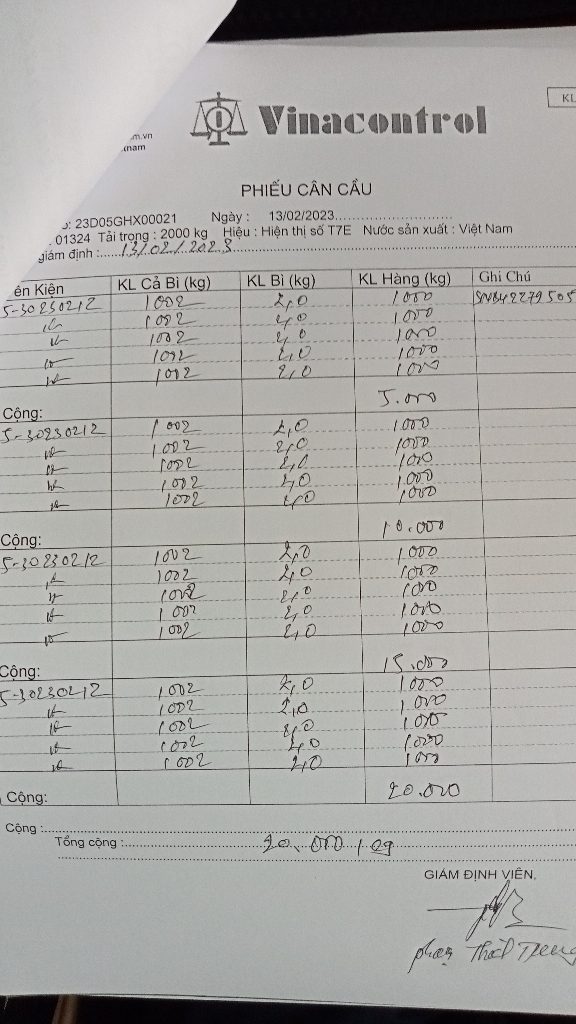 m.vn
nam
Vinacontrol
KL
PHIẾU CÂN CẦU
: 23D05GHX00021 Ngày : 13/02/2023
01324 Tải trọng : 2000 kg Hiệu : Hiện thị số T7E Nước sản xuất : Việt Nam
giám định : 13/02/2023
ên Kiện KL Cả Bì (kg) KL Bì (kg) KL Hàng (kg) Ghi Chú
5-30230212 1002 2,0 1000
1002 2,0 1000
1002 2,0 1000
1002 2,0 1000
1002 2,0 1000
Cộng: 5.000
5-30230212 1002 2,0 1000
1002 2,0 1000
1002 2,0 1000
1002 2,0 1000
1002 2,0 1000
Cộng: 10.000
5-30230212 1002 2,0 1000
1002 2,0 1000
1002 2,0 1000
1002 2,0 1000
1002 2,0 1000
Cộng: 15.000
5-30230212 1002 2,0 1000
1002 2,0 1000
1002 2,0 1000
1002 2,0 1000
1002 2,0 1000
Cộng: 20.000
Cộng :
Tổng cộng : 20.000 kg
GIÁM ĐỊNH VIÊN,